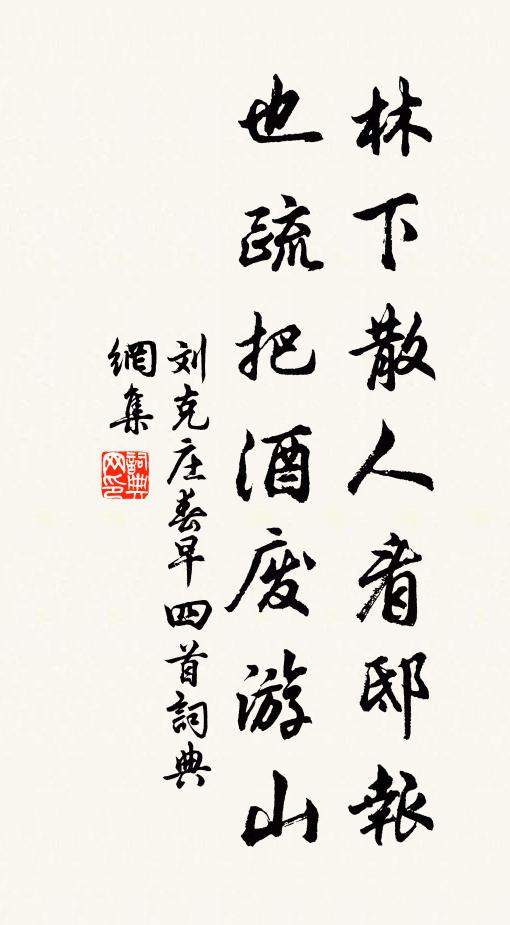 林下散人看邸報
也疏把酒废游山
刘克庄春早四首詞典
網集
詞典网印